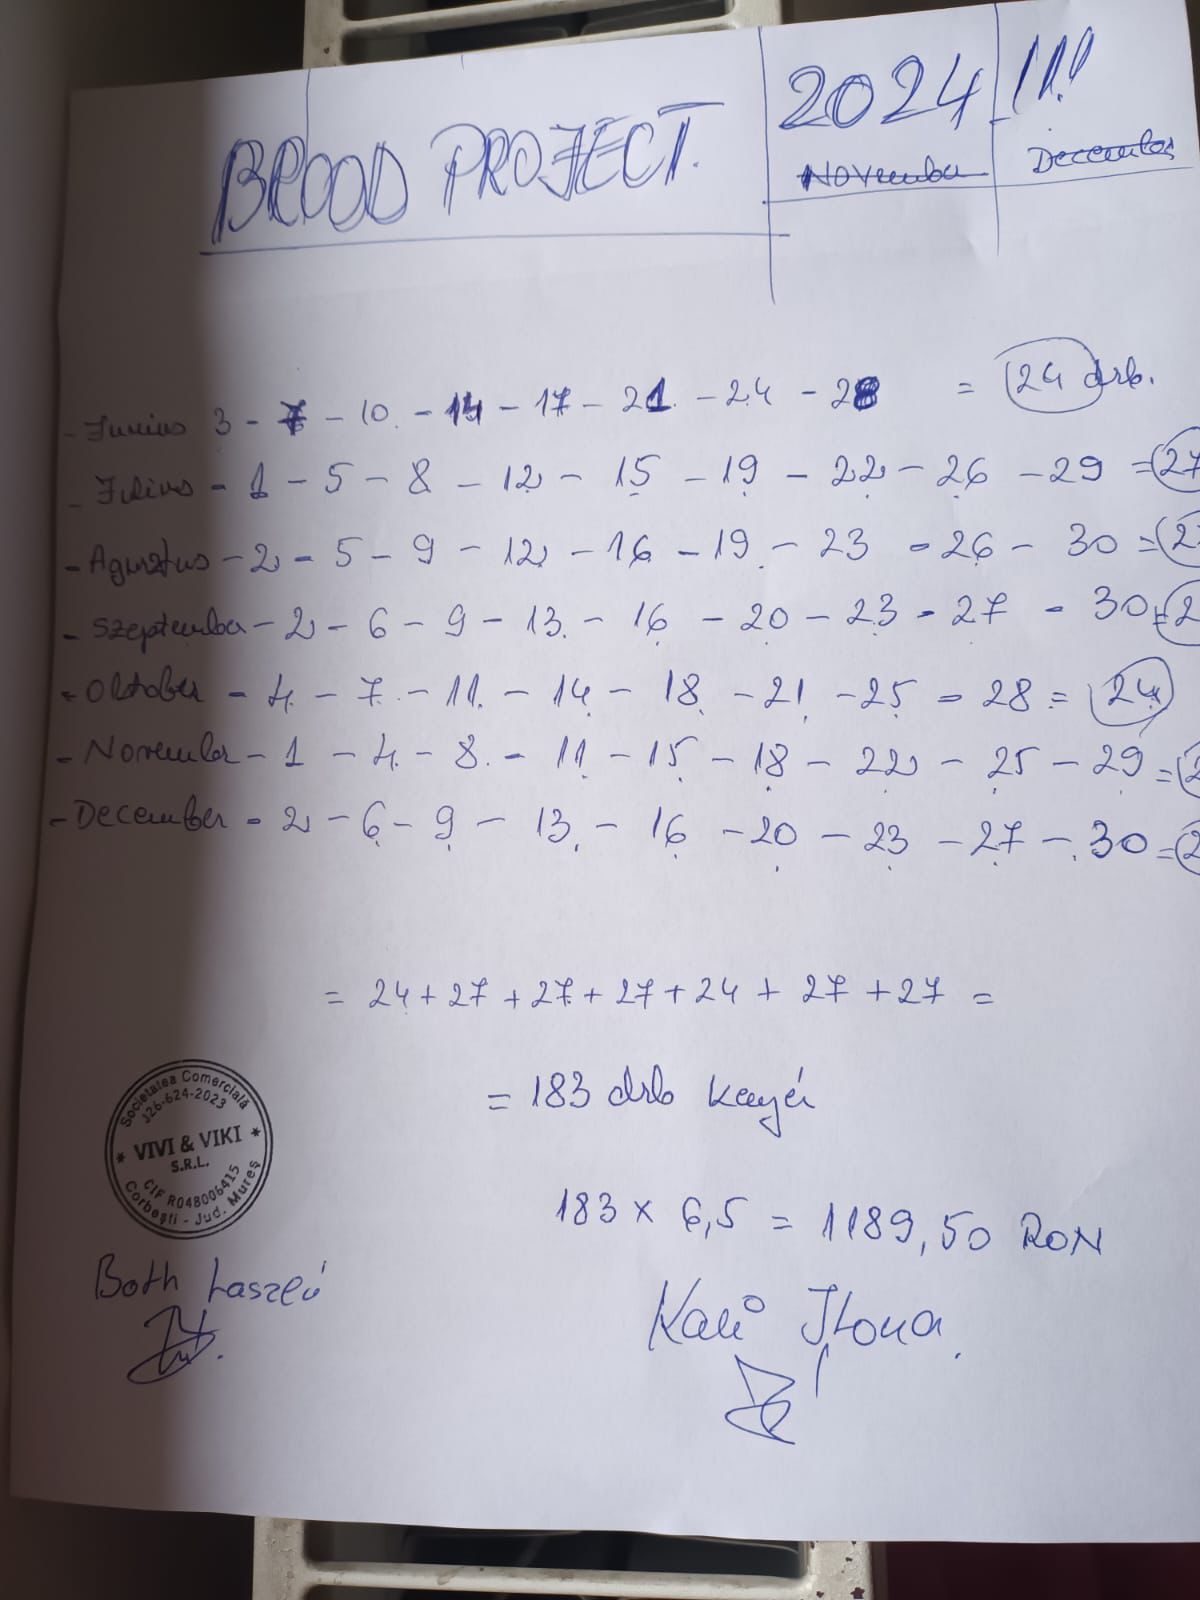 BROOD PROJECT.
2024 !!!
November December
- Junius 3 - 7 - 10. - 14 - 17 - 21. - 24 - 28 = 24 drb.
- Julius - 1 - 5 - 8 - 12 - 15 - 19 - 22 - 26 - 29 = 27
- Agusztus - 2 - 5 - 9 - 12 - 16 - 19. - 23 - 26 - 30 = 2
- Szeptember - 2 - 6 - 9 - 13. - 16 - 20 - 23 - 27 - 30 = 2
- Oktober - 4. - 7. - 11. - 14 - 18. - 21. - 25 - 28 = 24
- November - 1 - 4. - 8. - 11 - 15 - 18 - 22 - 25 - 29 = 2
- December - 2 - 6 - 9 - 13. - 16 - 20 - 23 - 27 - 30 = 2
= 24 + 27 + 27 + 27 + 24 + 27 + 27 =
= 183 drb
183 x 6,5 = 1189,50 RON
Societatea Comercială
J26-624-2023
* VIVI & VIKI *
S.R.L.
CIF RO48006415
Corbești - Jud. Mureș
Both László
Ilona.